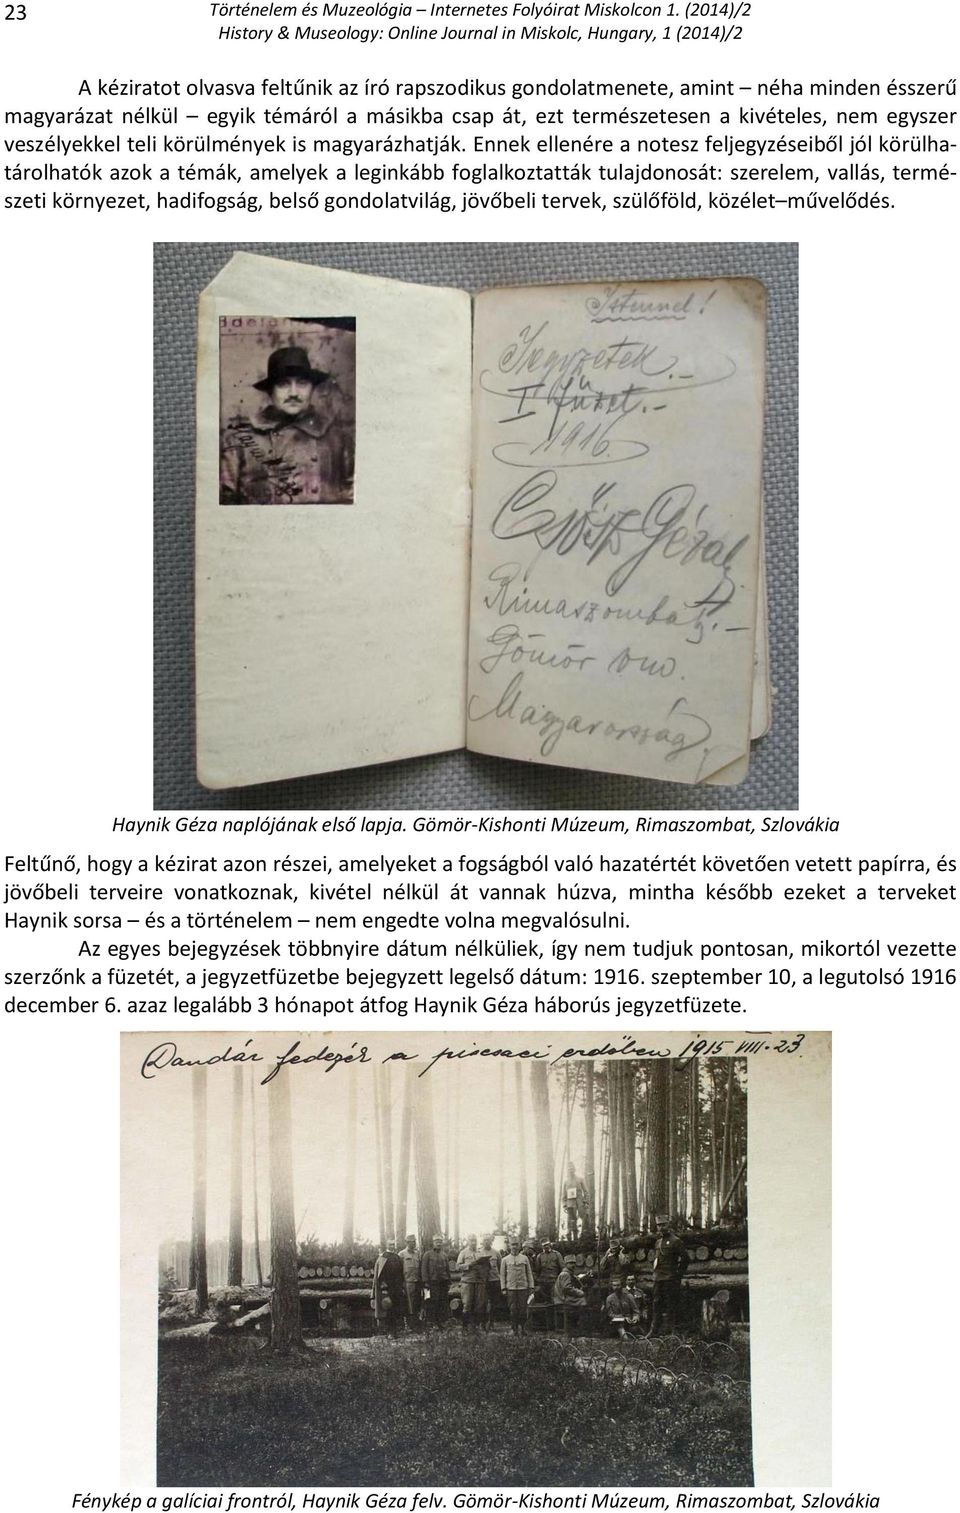 23
Történelem és Muzeológia – Internetes Folyóirat Miskolcon 1. (2014)/2
History & Museology: Online Journal in Miskolc, Hungary, 1 (2014)/2
A kéziratot olvasva feltűnik az író rapszodikus gondolatmenete, amint – néha minden ésszerű
magyarázat nélkül – egyik témáról a másikba csap át, ezt természetesen a kivételes, nem egyszer
veszélyekkel teli körülmények is magyarázhatják. Ennek ellenére a notesz feljegyzéseiből jól körülha-
tárolhatók azok a témák, amelyek a leginkább foglalkoztatták tulajdonosát: szerelem, vallás, termé-
szeti környezet, hadifogság, belső gondolatvilág, jövőbeli tervek, szülőföld, közélet–művelődés.
Istennel!
Jegyzetek.-
I füzet.-
1916.
Géza
Rimaszombat.-
Gömör vm.
Magyarország.
Haynik Géza naplójának első lapja. Gömör-Kishonti Múzeum, Rimaszombat, Szlovákia
Feltűnő, hogy a kézirat azon részei, amelyeket a fogságból való hazatértét követően vetett papírra, és
jövőbeli terveire vonatkoznak, kivétel nélkül át vannak húzva, mintha később ezeket a terveket
Haynik sorsa – és a történelem – nem engedte volna megvalósulni.
Az egyes bejegyzések többnyire dátum nélküliek, így nem tudjuk pontosan, mikortól vezette
szerzőnk a füzetét, a jegyzetfüzetbe bejegyzett legelső dátum: 1916. szeptember 10, a legutolsó 1916
december 6. azaz legalább 3 hónapot átfog Haynik Géza háborús jegyzetfüzete.
Dandár fedezék a piscsaci erdőben 1915 VIII.23.
Fénykép a galíciai frontról, Haynik Géza felv. Gömör-Kishonti Múzeum, Rimaszombat, Szlovákia